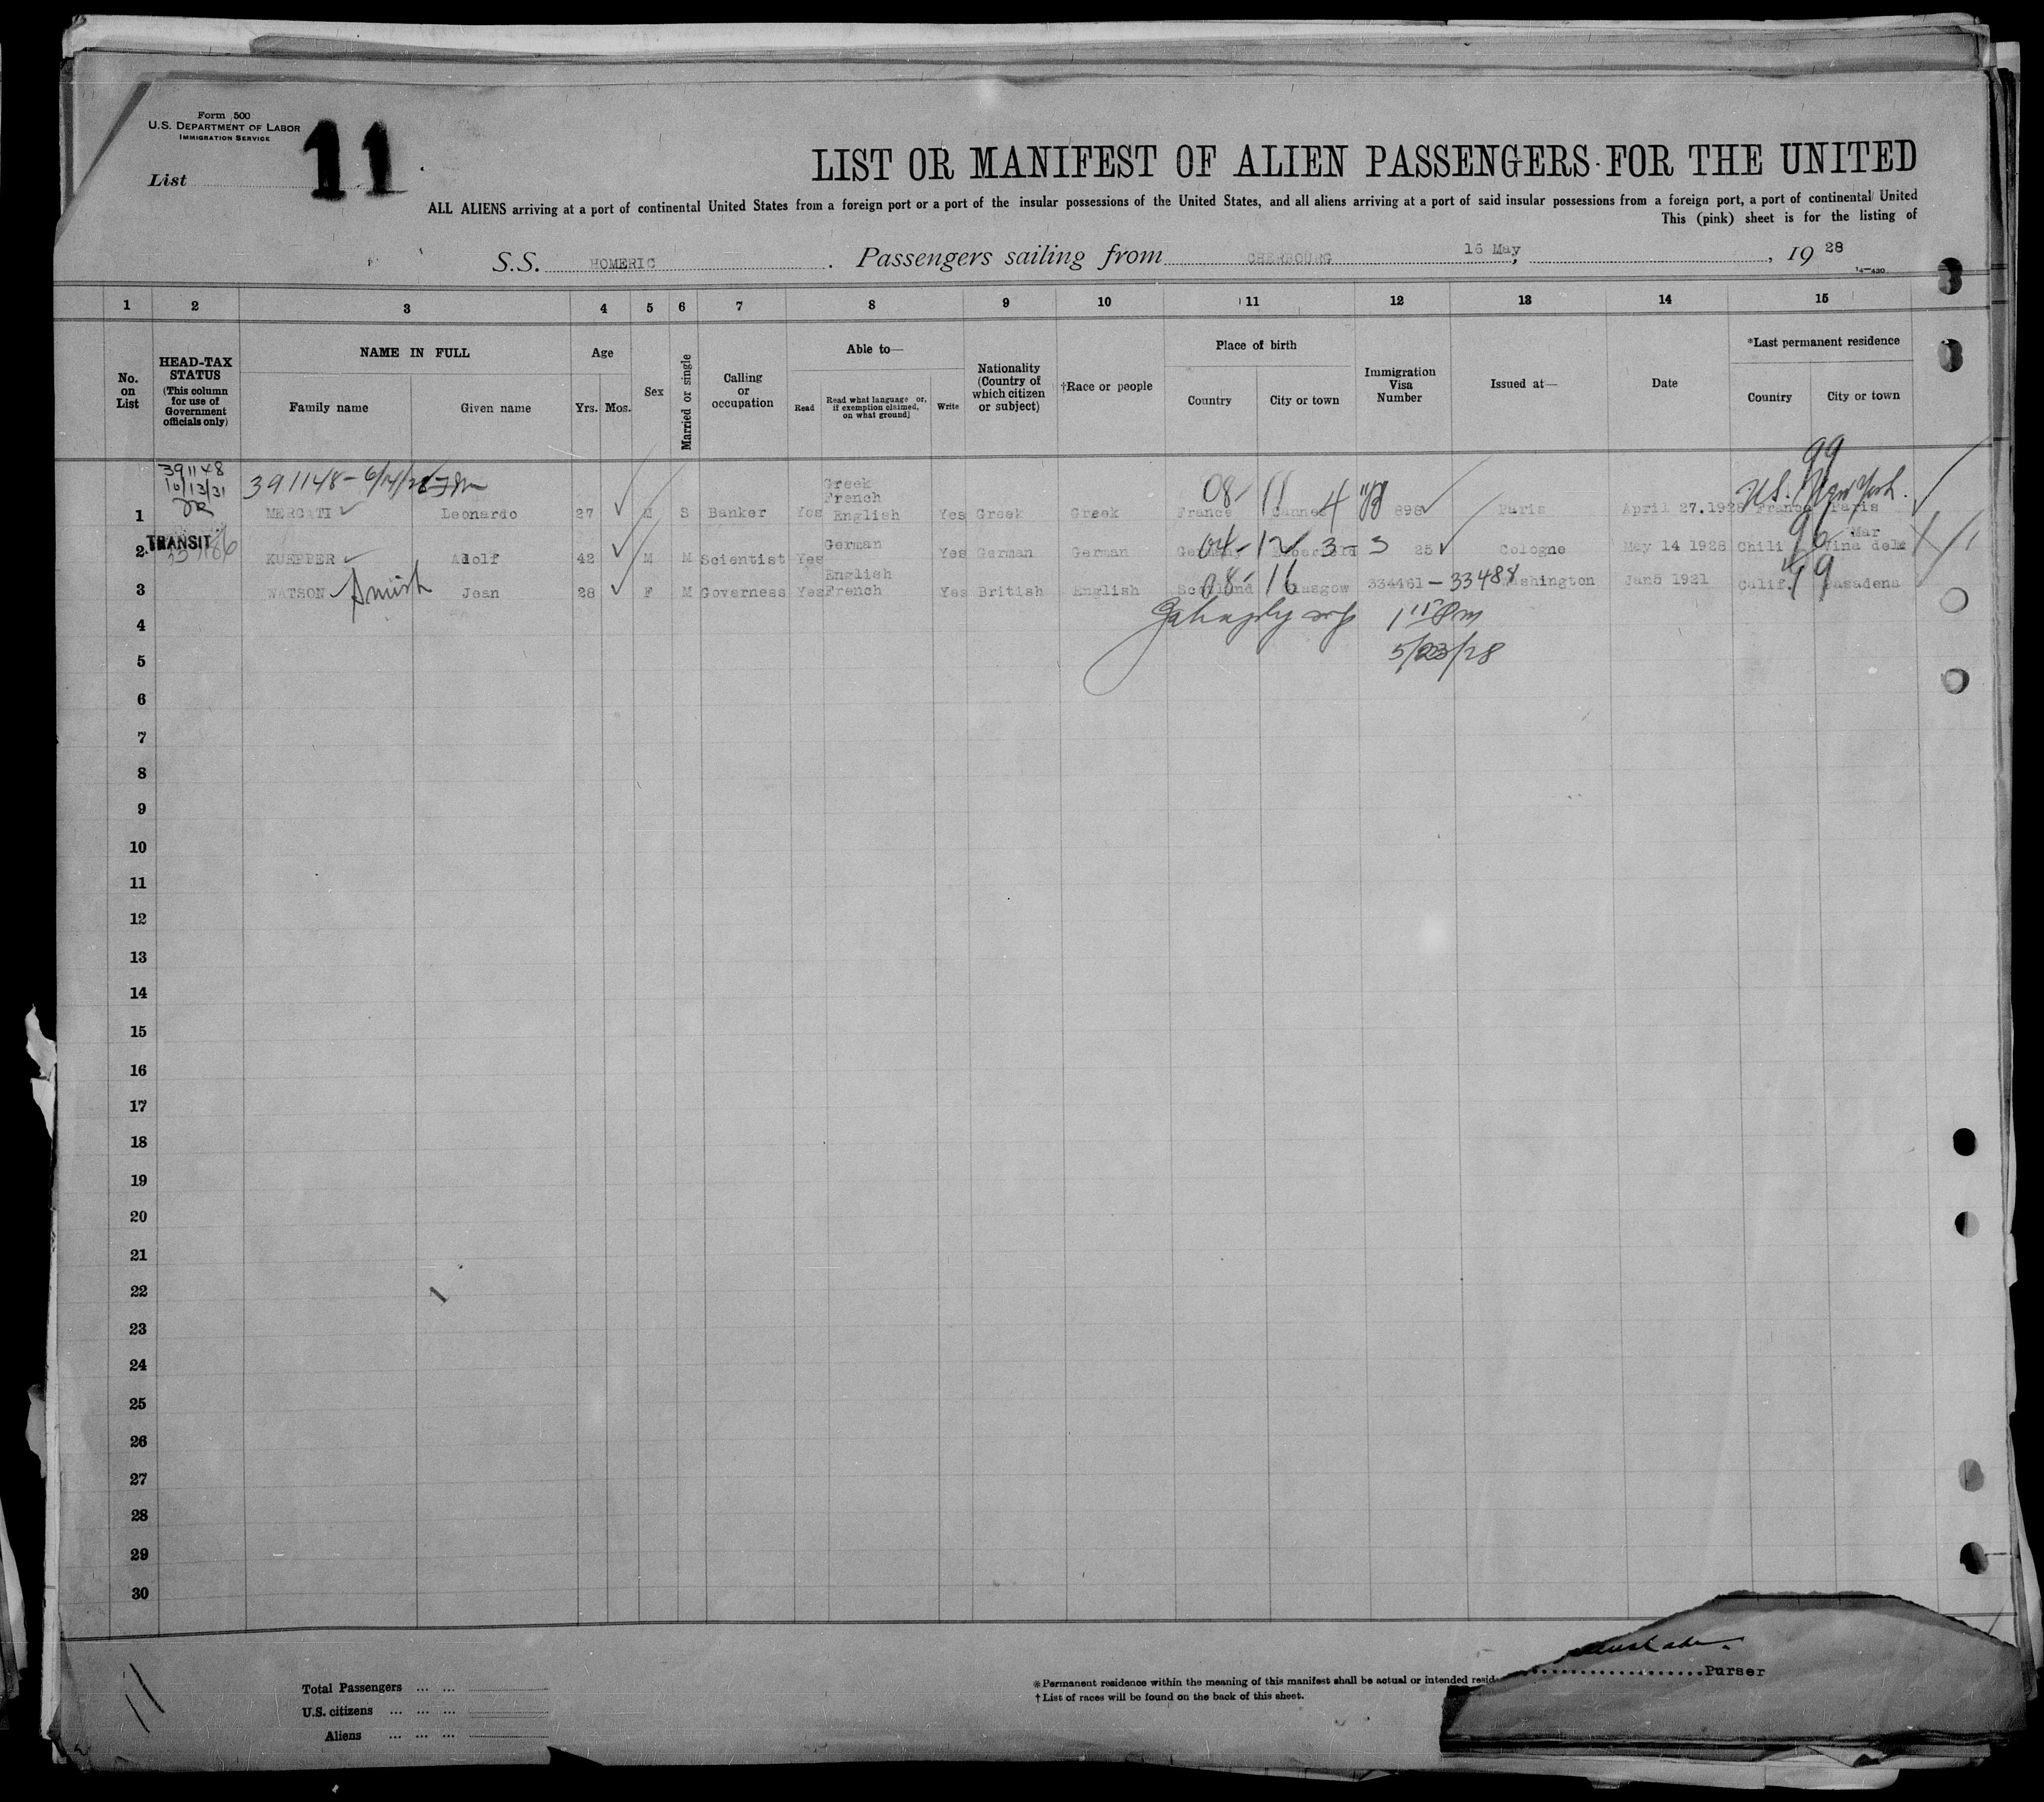 Form 500
U.S. DEPARTMENT OF LABOR
IMMIGRATION SERVICE
List 11
LIST OR MANIFEST OF ALIEN PASSENGERS FOR THE UNITED
ALL ALIENS arriving at a port of continental United States from a foreign port or a port of the insular possessions of the United States, and all aliens arriving at a port of said insular possessions from a foreign port, a port of continental United
This (pink) sheet is for the listing of
S.S. HOMERIC . Passengers sailing from CHERBOURG 16 May, , 19 28
14—430
1 2 3 4 5 6 7 8 9 10 11 12 13 14 15
No. on List
HEAD-TAX STATUS (This column for use of Government officials only)
NAME IN FULL
Family name Given name
Age
Yrs. Mos.
Sex
Married or single
Calling or occupation
Able to—
Read Read what language or, if exemption claimed, on what ground] Write
Nationality (Country of which citizen or subject)
†Race or people
Place of birth
Country City or town
Immigration Visa Number
Issued at—
Date
*Last permanent residence
Country City or town
391148
10/13/31
391148 - 6/14/28
08- 11 4
99
U.S. New York.
1 MERCATI Leonardo 27 M S Banker Yes Greek French English Yes Greek Greek France Cannes 898 Paris April 27.1928 France Paris
TRANSIT
04-12 3-3
96
2 KUEPPER Adolf 42 M M Scientist Yes German Yes German German Germany 25 Cologne May 14 1928 Chili Vina delMar
08- 16
99
3 WATSON Jean 28 F M Governess Yes English French Yes British English Scotland Glasgow 334461 - 33488 Washington Jan5 1921 Calif. Pasadena
5/23/28
4
5
6
7
8
9
10
11
12
13
14
15
16
17
18
19
20
21
22
23
24
25
26
27
28
29
30
11
Total Passengers ... ...
U.S. citizens ... ... ...
Aliens ... ... ...
*Permanent residence within the meaning of this manifest shall be actual or intended
†List of races will be found on the back of this sheet.
Purser